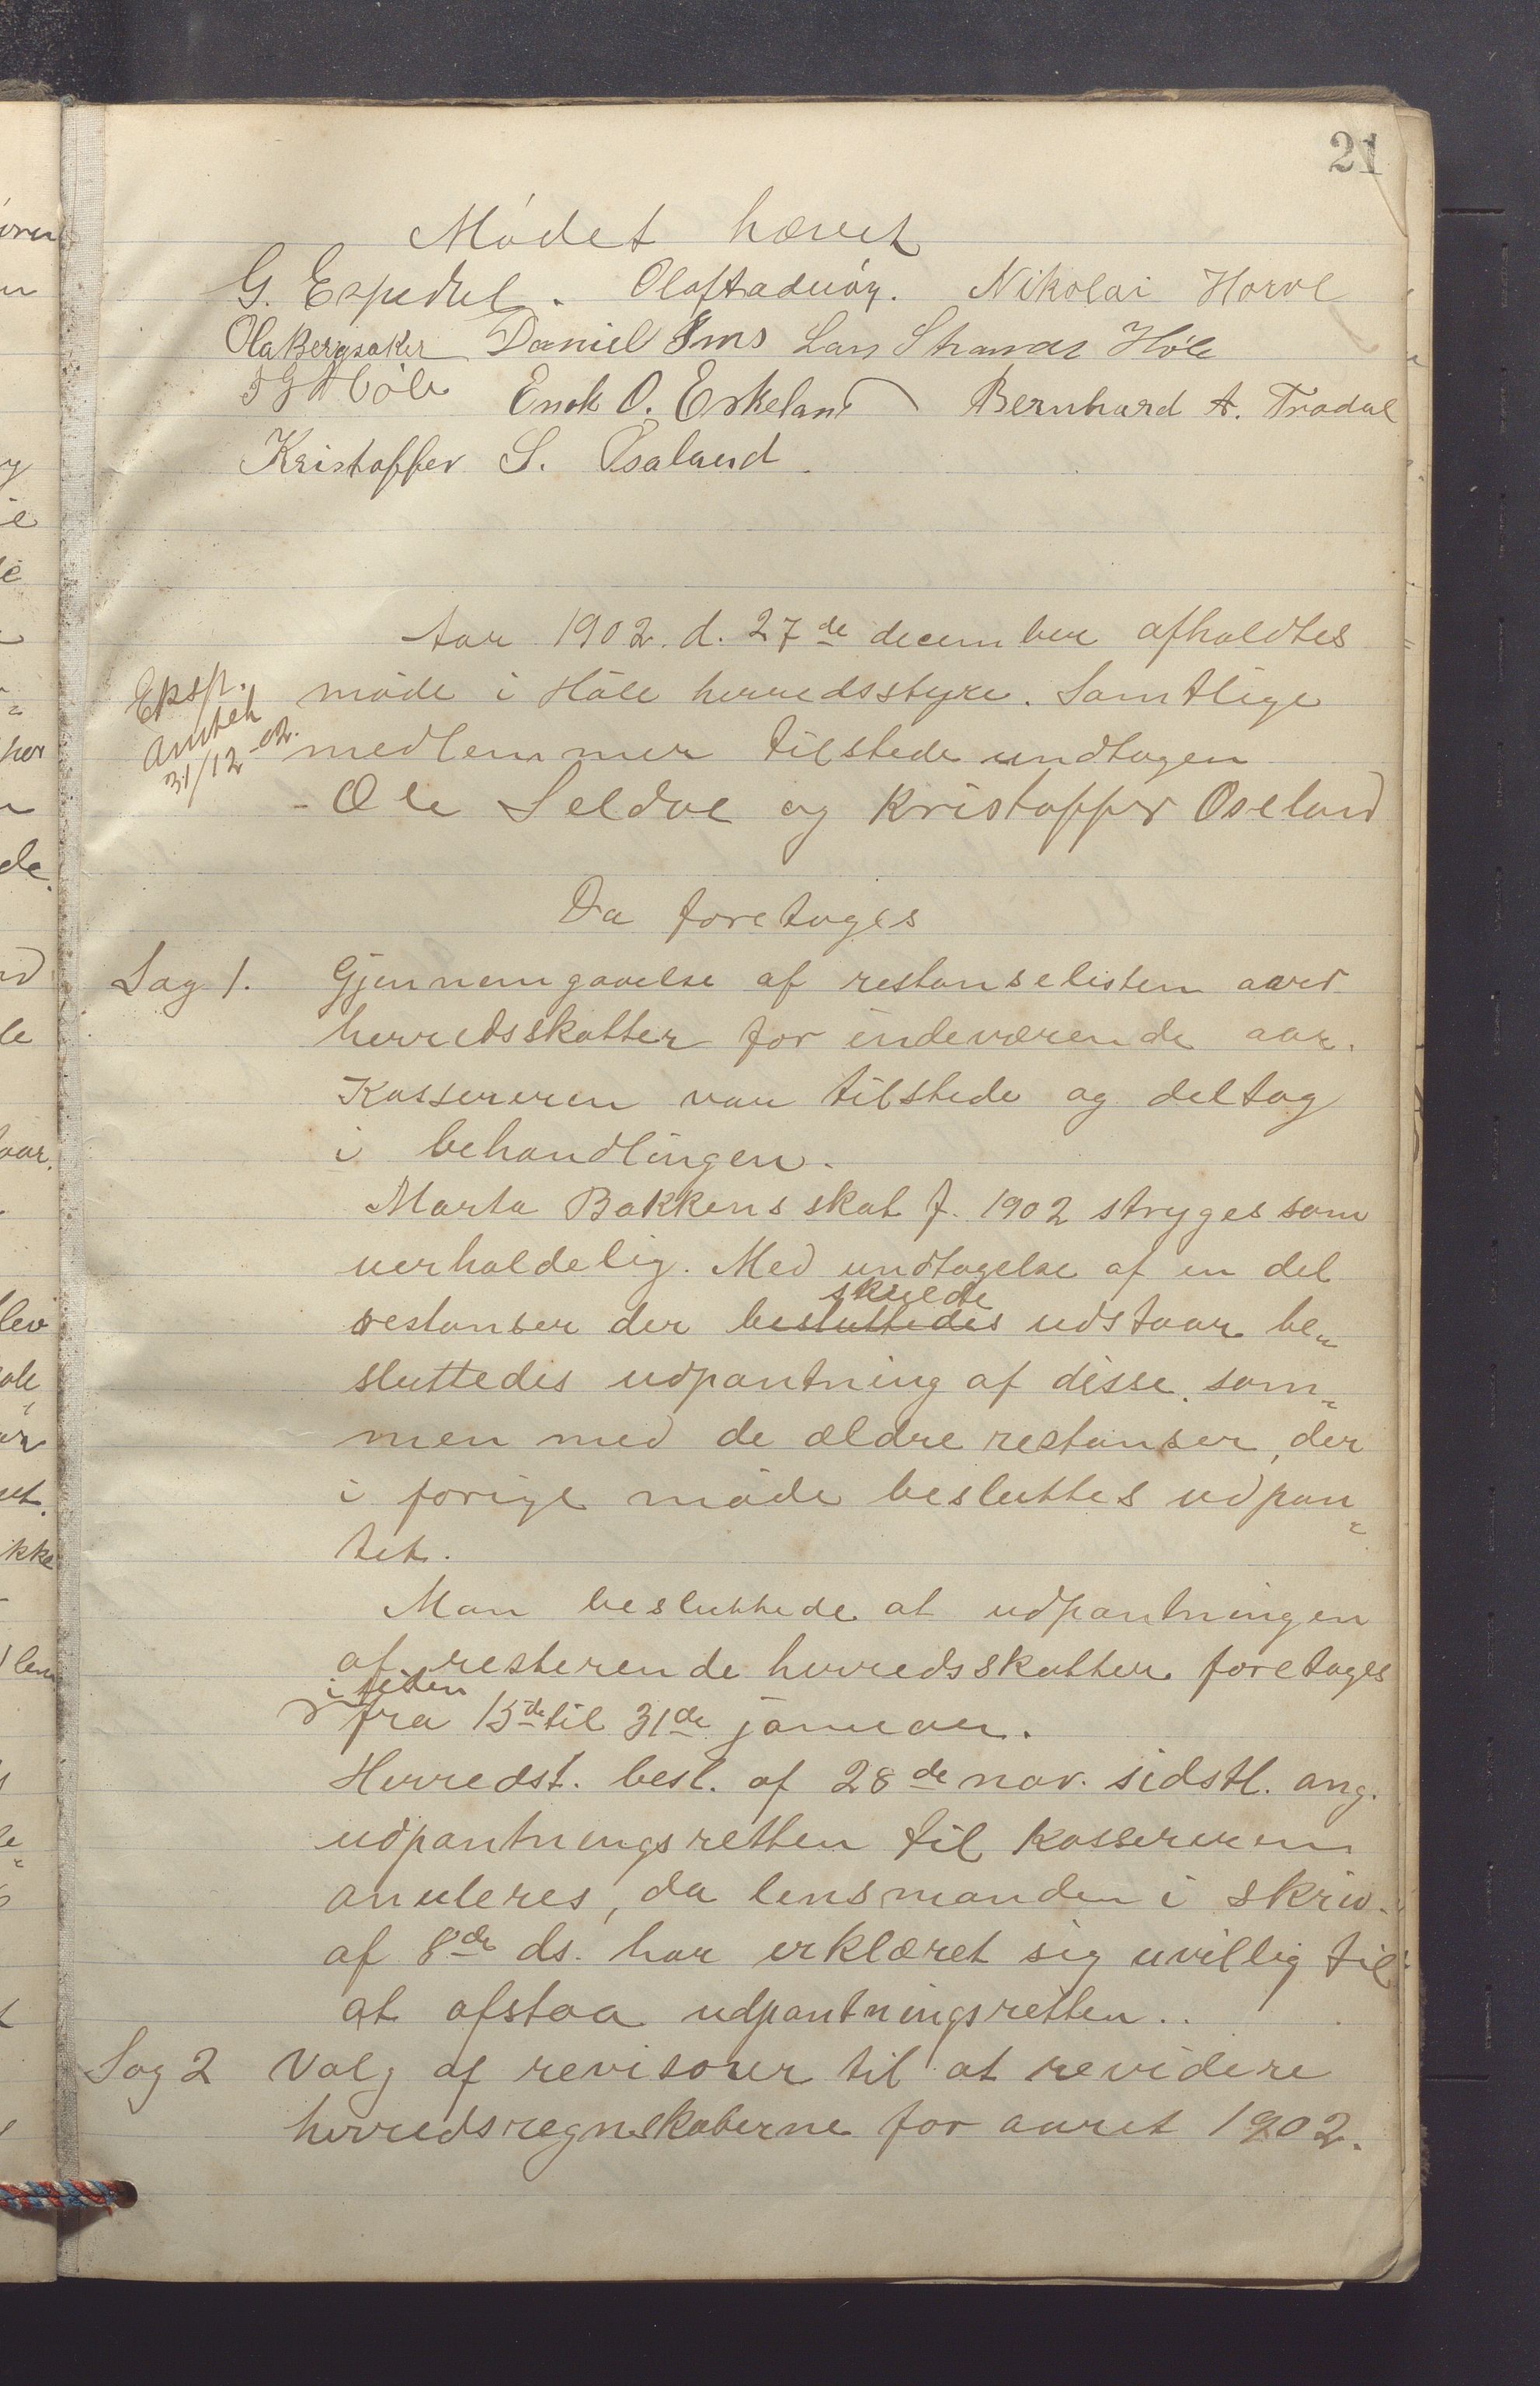 21
Mødet hævet
G. Espedal. Nikolai
Ola Bergsaker Daniel Ims Lars Høle
Høle Enok O. Eskeland Bernhard A. Tradal
Kristoffer S. Osaland.
Aar 1902. d. 27de december afholdtes
Eksp.
møde i Høle herredsstyre. Samtlige
amtet
31/12 02.
medlemmer tilstede undtagen
Ole Seldal og Kristoffer Oseland
Da foretoges
Sag 1. Gjennemgaaelse af restanselisten
herredsskatter for indeværende aar.
Kassereren var tilstede og deltog
i behandlingen.
Marta Bakkens skat f. 1902 stryges som
uerholdelig. Med undtagelse af en del
skulde
restanser der besluttedes udstaar be„
sluttedes udpantning af disse, sam„
men med de ældre restanser, der
i forige møde besluttes udpan„
tet.
Man besluttede at udpantningen
af resterende herredsskatter foretages
i tiden
fra 15de til 31de januar.
Herredst. besl. af 28de nov. sidstl. ang.
udpantningsretten til kassereren
anuleres, da lensmanden i skriv.
af 8de ds. har erklæret sig uvillig til
at afstaa udpantningsretten..
Sag 2 Valg af revisorer til at revidere
herredsregnskaberne for aaret 1902.